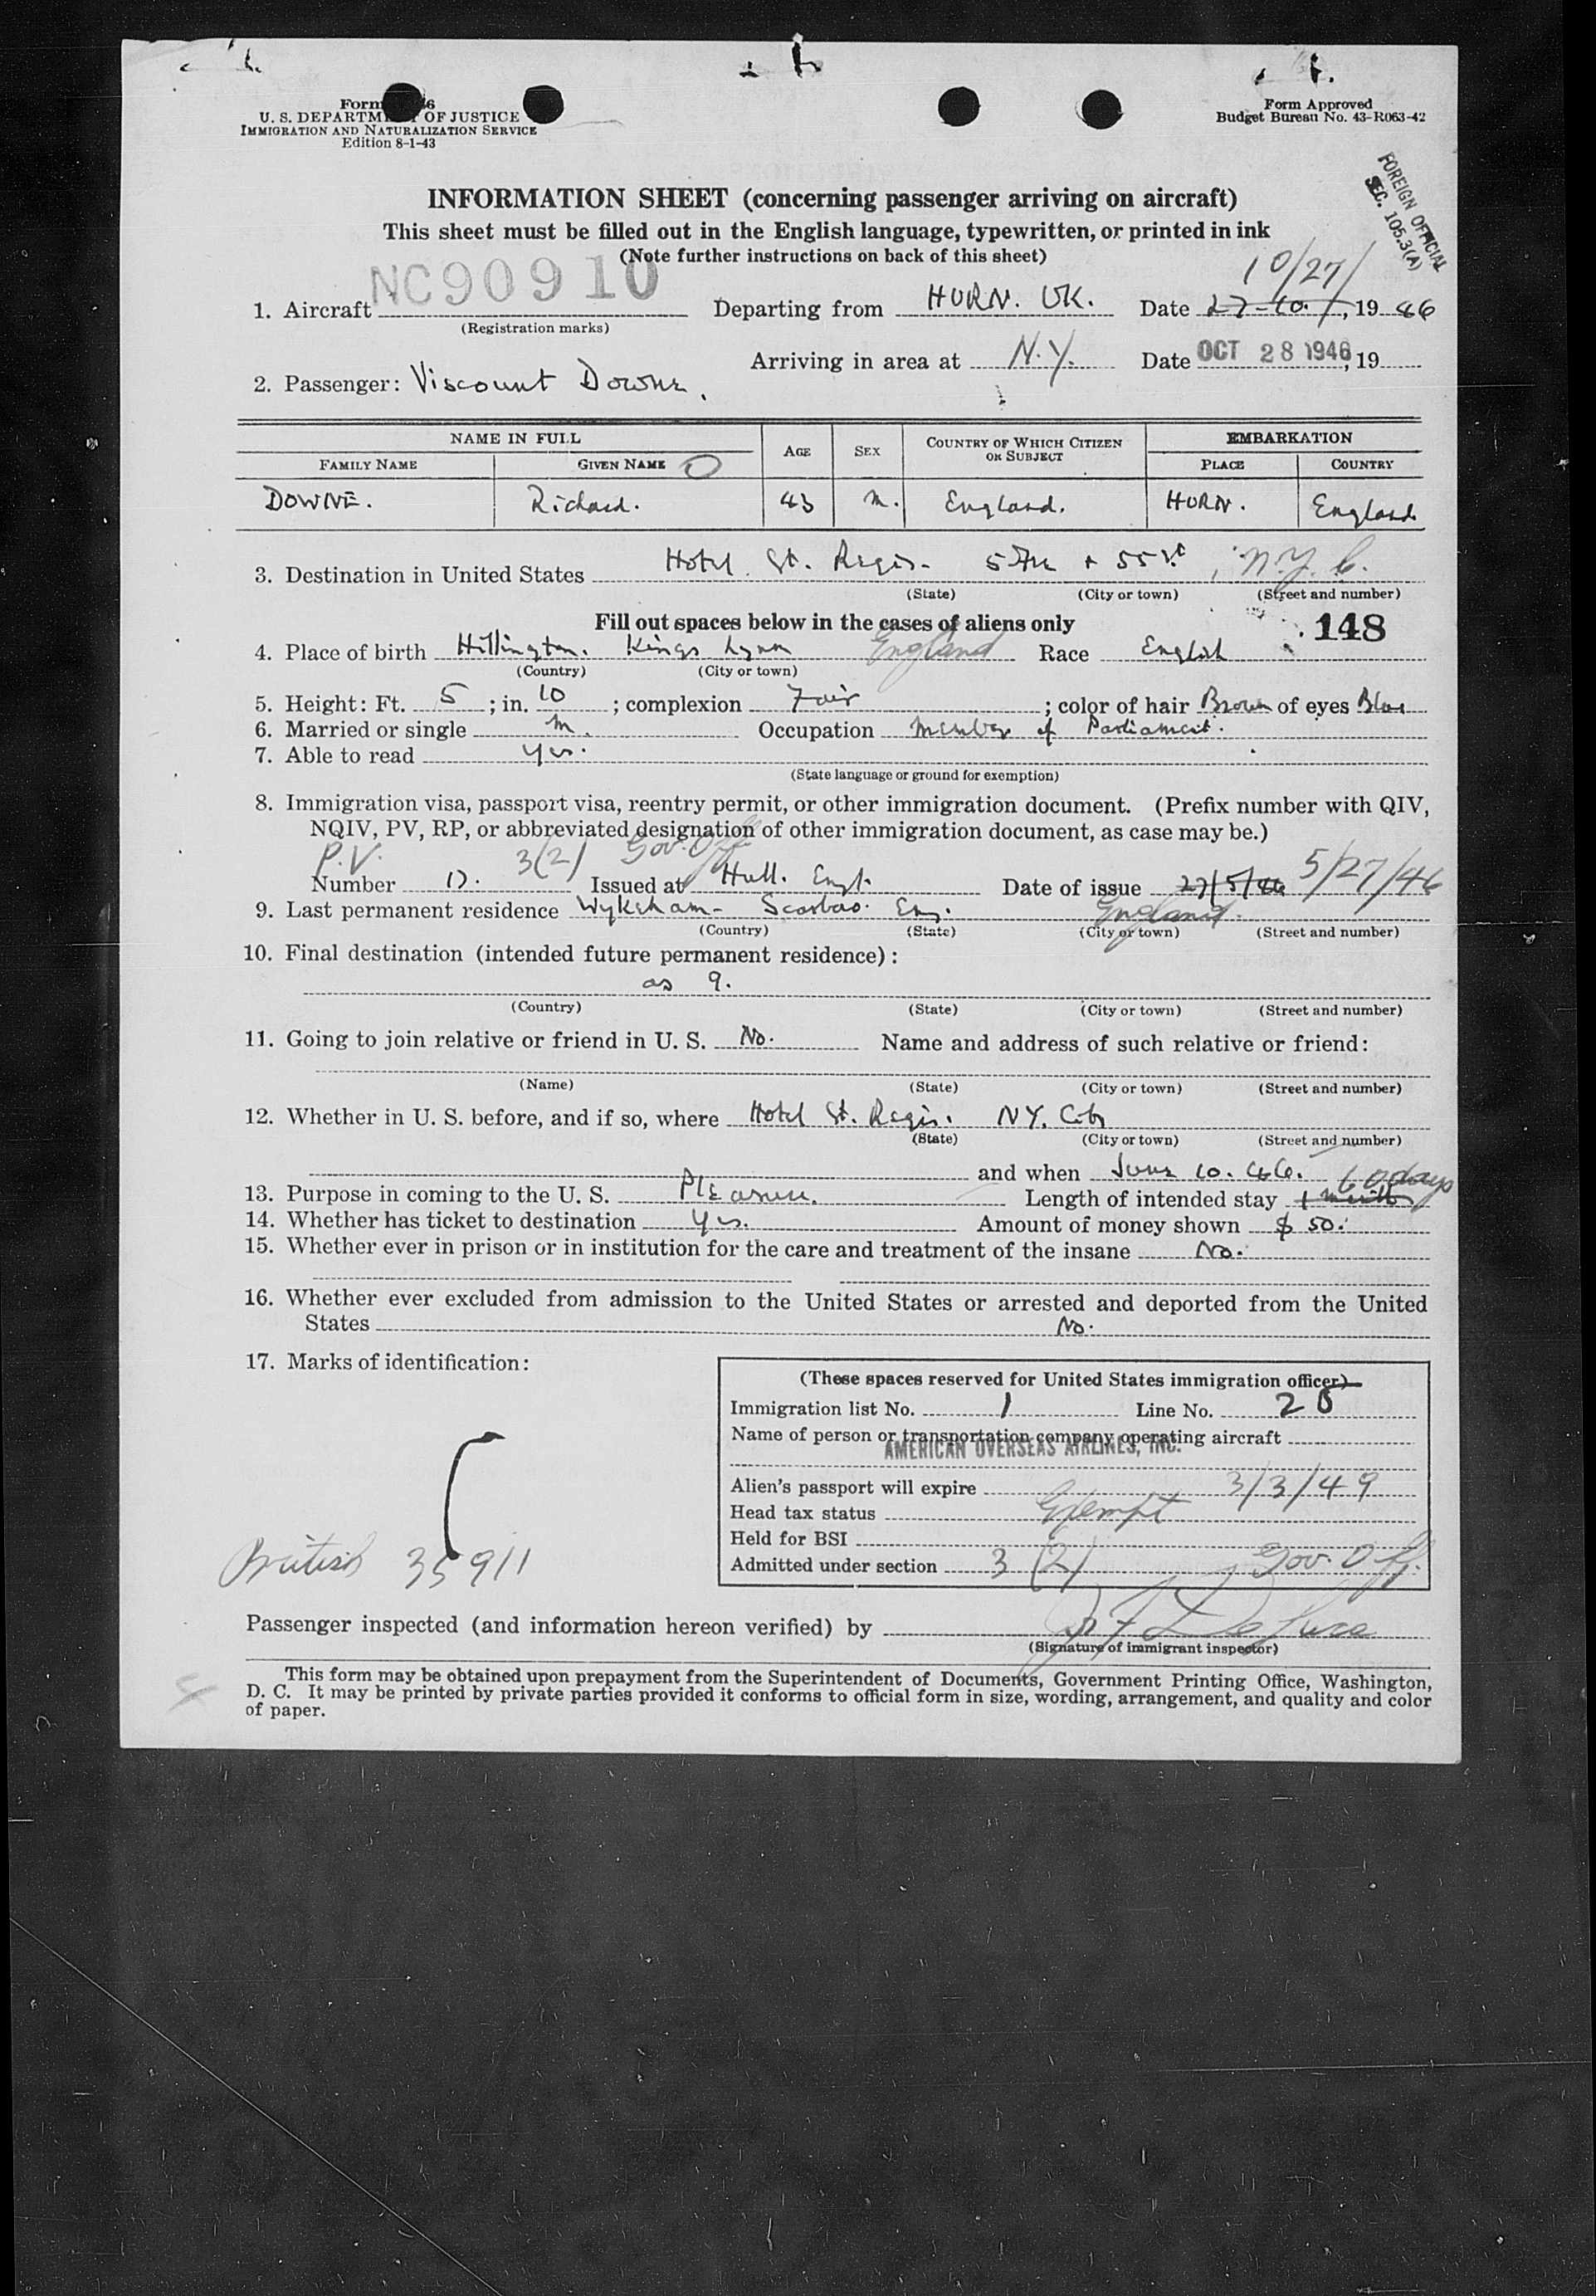 Form 6
U. S. DEPARTM OF JUSTICE
IMMIGRATION AND NATURALIZATION SERVICE
Edition 8-1-43
Form Approved
Budget Bureau No. 43-R063-42
FOREIGN OFFICIAL
SEC. 105.3(A)
INFORMATION SHEET (concerning passenger arriving on aircraft)
This sheet must be filled out in the English language, typewritten, or printed in ink
(Note further instructions on back of this sheet)
10/27/
1. Aircraft NC90910 Departing from HURN. UK. Date 27-10-, 19 46
(Registration marks)
Arriving in area at N.Y. Date OCT 28 1946, 19
2. Passenger: Viscount Downe.
NAME IN FULL AGE SEX COUNTRY OF WHICH CITIZEN OR SUBJECT EMBARKATION
FAMILY NAME GIVEN NAME PLACE COUNTRY
DOWNE. Richard. 43 M. England. HURN. England
3. Destination in United States Hotel St. Regis. 5th + 55 St, N.Y.C.
(State) (City or town) (Street and number)
Fill out spaces below in the cases of aliens only 148
4. Place of birth Hillington. Kings Lynn England Race English
(Country) (City or town)
5. Height: Ft. 5; in. 10; complexion Fair; color of hair Brown of eyes Blue
6. Married or single M. Occupation Member of Parliament.
7. Able to read Yes.
(State language or ground for exemption)
8. Immigration visa, passport visa, reentry permit, or other immigration document. (Prefix number with QIV,
NQIV, PV, RP, or abbreviated designation of other immigration document, as case may be.)
P.V. 3(2) Gov. Off.
Number 17. Issued at Hull. Engl. Date of issue 27/5/46 5/27/46
9. Last permanent residence Wykeham- Scarboro. Eng. England.
(Country) (State) (City or town) (Street and number)
10. Final destination (intended future permanent residence):
as 9.
(Country) (State) (City or town) (Street and number)
11. Going to join relative or friend in U. S. No. Name and address of such relative or friend:
(Name) (State) (City or town) (Street and number)
12. Whether in U. S. before, and if so, where Hotel St. Regis. NY. City
(State) (City or town) (Street and number)
and when June 10. 46.
13. Purpose in coming to the U. S. Pleasure. Length of intended stay 1 month 60 days
14. Whether has ticket to destination Yes. Amount of money shown $ 50.
15. Whether ever in prison or in institution for the care and treatment of the insane No.
16. Whether ever excluded from admission to the United States or arrested and deported from the United
States No.
17. Marks of identification:
(These spaces reserved for United States immigration officer)
Immigration list No. 1 Line No. 28
Name of person or transportation company operating aircraft
AMERICAN OVERSEAS AIRLINES, INC.
Alien's passport will expire 3/3/49
Head tax status Exempt
Held for BSI
Admitted under section 3 (2) Gov. Off.
British 35911
Passenger inspected (and information hereon verified) by
(Signature of immigrant inspector)
This form may be obtained upon prepayment from the Superintendent of Documents, Government Printing Office, Washington,
D. C. It may be printed by private parties provided it conforms to official form in size, wording, arrangement, and quality and color
of paper.